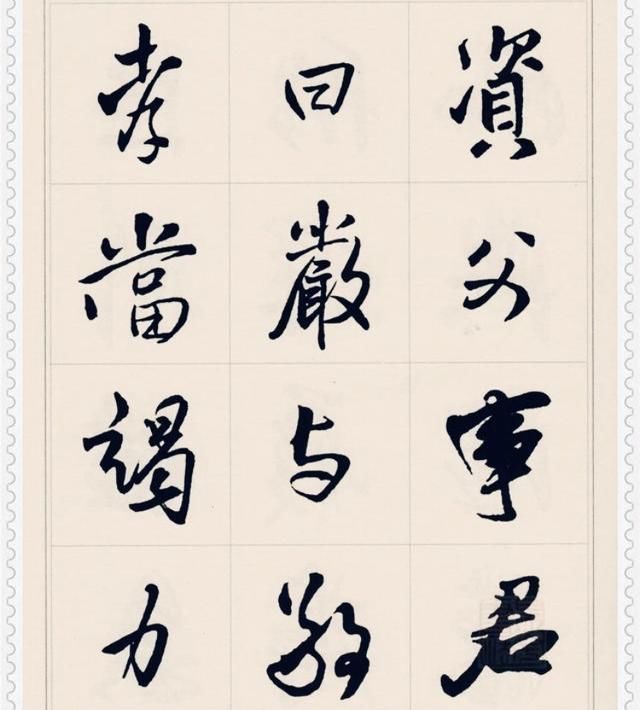 資父事君
曰嚴与敬
孝當竭力